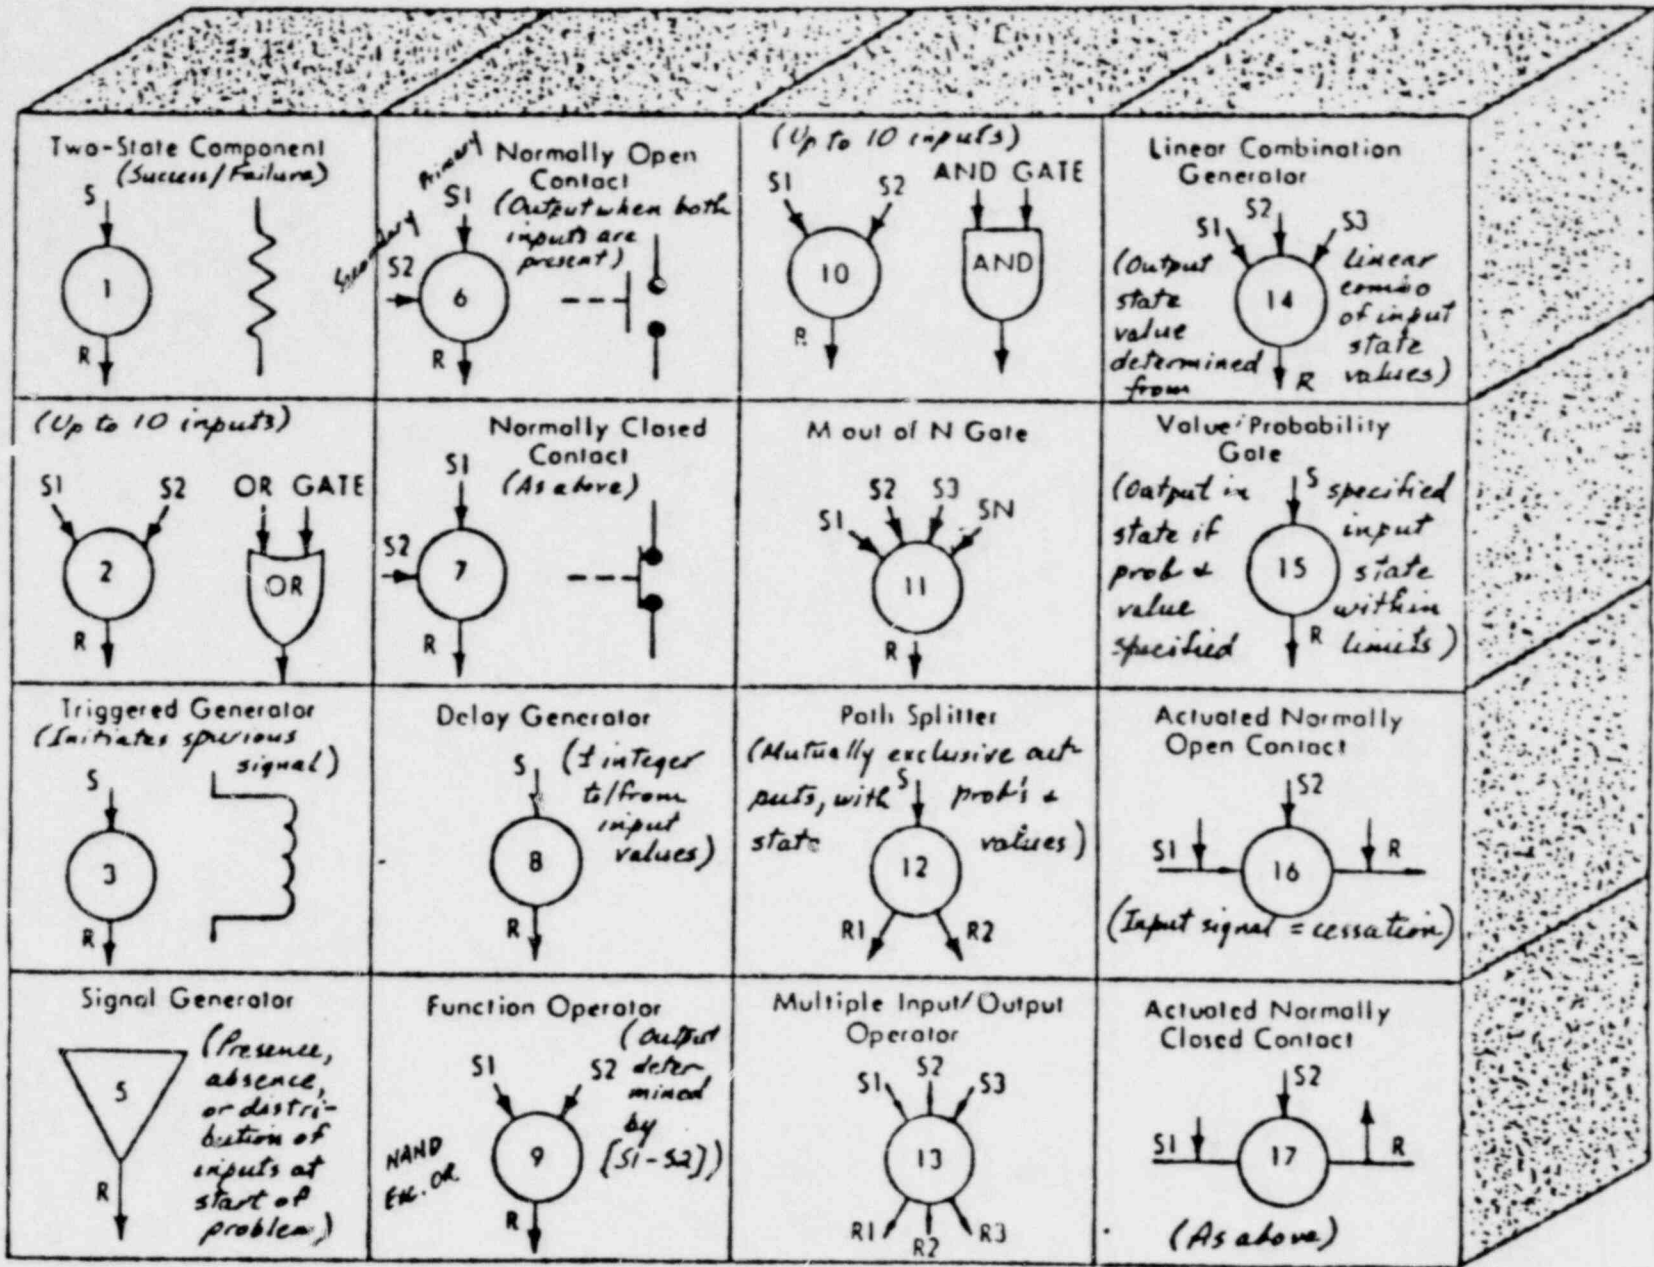 Two-State Component
(Success/Failure)
S
1
R
Primary
Normally Open
Contact
S1
(Output when both
inputs are
present)
Secondary
S2
6
R
(Up to 10 inputs)
S1
S2
AND GATE
10
AND
R
Linear Combination
Generator
S1
S2
S3
(Output
state
value
determined
from
14
R
linear
combo
of input
state
values)
(Up to 10 inputs)
S1
S2
OR GATE
2
OR
R
Normally Closed
Contact
(As above)
S1
S2
7
R
M out of N Gate
S1
S2
S3
SN
11
R
Value/Probability
Gate
(Output in
state if
prob &
value
specified
S
15
R
specified
input
state
within
limits)
Triggered Generator
(Initiates spurious
signal)
S
3
R
Delay Generator
S
(± integer
to/from
input
values)
8
R
Path Splitter
(Mutually exclusive out-
puts, with S prob's &
state values)
12
R1
R2
Actuated Normally
Open Contact
S2
S1
16
R
(Input signal = cessation)
Signal Generator
5
R
(Presence,
absence,
or distri-
bution of
inputs at
start of
problem)
Function Operator
S1
S2
(Output
deter-
mined
by
[S1-S2])
NAND
Exc. OR
9
R
Multiple Input/Output
Operator
S1
S2
S3
13
R1
R2
R3
Actuated Normally
Closed Contact
S2
S1
17
R
(As above)